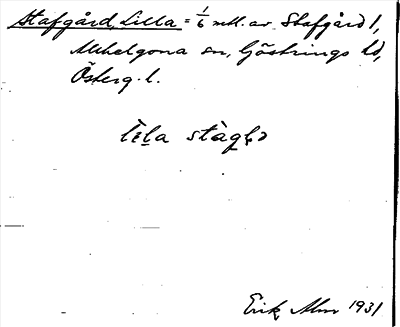 Stafgård, Lilla = 1/6 mtl. av Stafgård 1,
Mhelgona sn, Göstrings hd,
Österg. l.
Erik Alm 1931